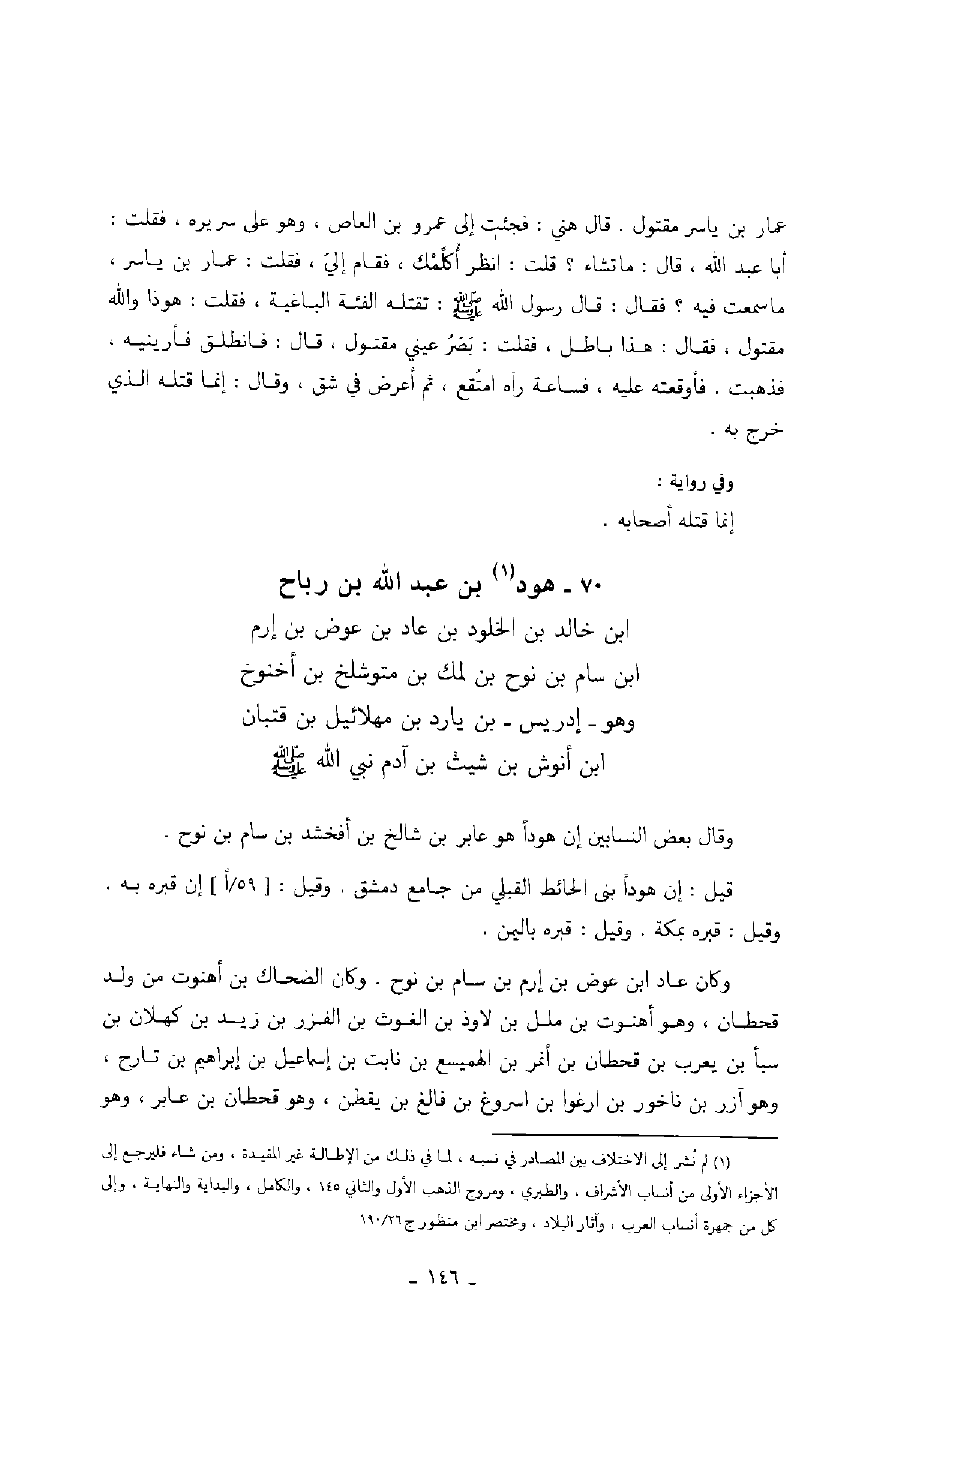 عمار بن ياسر مقتول . قال هني : فجئت إلى عمرو بن العاص ، وهو على سريره ، فقلت :
أبا عبد الله ، قال : ماتشاء ؟ قلت : انظر أُكلِّمْك ، فقـام إليّ ، فقلت : عمـار بن يـاسر ،
ماسمعت فيه ؟ فقـال : قـال رسول الله ﷺ : تقتلـه الفئـة البـاغيـة ، فقلت : هوذا والله
مقتول ، فقـال : هـذا بـاطـل ، فقلت : بَصَرُ عيني مقتـول ، قـال : فـانطلـق فـأرينيـه ،
فذهبت . فأوقعته عليه ، فسـاعـة رآه امتُقع ، ثم أعرض في شق ، وقـال : إنمـا قتلـه الـذي
خرج به .
وفي رواية :
إنما قتله أصحابه .
٧٠ ـ هود(١) بن عبد الله بن رباح
ابن خالد بن الخلود بن عاد بن عوض بن إرم
ابن سام بن نوح بن لمك بن متوشلخ بن أخنوخ
وهو ـ إدريس ـ بن يارد بن مهلائيل بن قتبان
ابن أنوش بن شيث بن آدم نبي الله ﷺ
وقال بعض النسابين إن هوداً هو عابر بن شالخ بن أفخشد بن سام بن نوح .
قيل : إن هوداً بنى الحائط القبلي من جامع دمشق . وقيل : [ ٥٩/أ ] إن قبره بـه .
وقيل : قبره بمكة . وقيل : قبره باليمن .
وكان عـاد ابن عوض بن إرم بن سـام بن نوح . وكان الضحاك بن أهنوت من ولـد
قحطـان ، وهـو أهنـوت بن ملـل بن لاوذ بن الغـوث بن الفزر بن زيـد بن كهلان بن
سبأ بن يعرب بن قحطان بن أنمر بن الهميسع بن نابت بن إسماعيل بن إبراهيم بن تـارح ،
وهو آزر بن ناخور بن ارغوا بن اسروغ بن فالغ بن يقطن ، وهو قحطان بن عـابر ، وهو
(١) لم نُشر إلى الاختلاف بين المصادر في نسبه ، لمـا في ذلـك من الإطـالـة غير المفيـدة ، ومن شـاء فليرجـع إلى
الأجزاء الأولى من أنساب الأشراف ، والطبري ، ومروج الذهب الأول والثاني ١٤٥ ، والكامل ، والبداية والنهايـة ، وإلى
كل من جمهرة أنساب العرب ، وآثار البلاد ، ومختصر ابن منظور ج٢٦/١٩٠
ـ ١٤٦ ـ